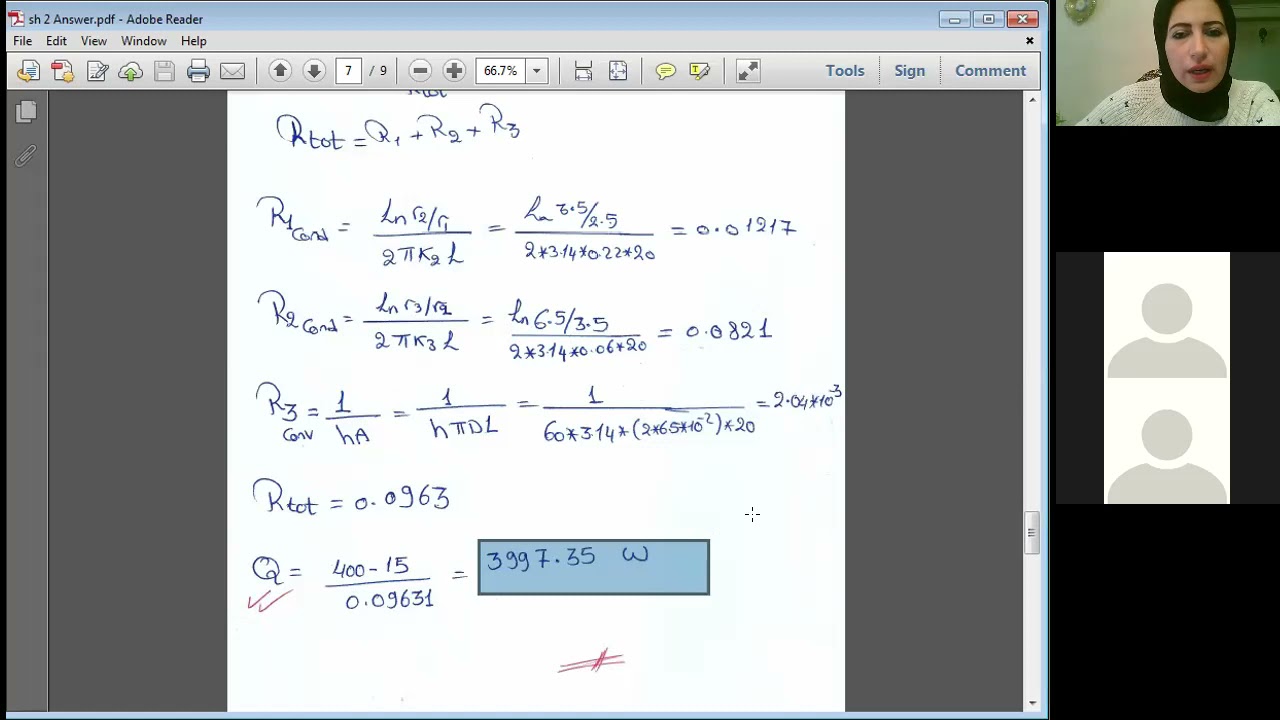 sh 2 Answer.pdf - Adobe Reader
File Edit View Window Help
7 / 9 66.7% Tools Sign Comment
Rtot = R1 + R2 + R3
R1 Cond = Ln r2/r1 / 2πK2L = Ln 3.5/2.5 / 2*3.14*0.22*20 = 0.01217
R2 Cond = Ln r3/r2 / 2πK3L = Ln 6.5/3.5 / 2*3.14*0.06*20 = 0.0821
R3 Conv = 1/hA = 1/hπDL = 1 / 60*3.14*(2*6.5*10^-2)*20 = 2.04*10^-3
Rtot = 0.0963
Q = 400-15 / 0.09631 = 3997.35 W